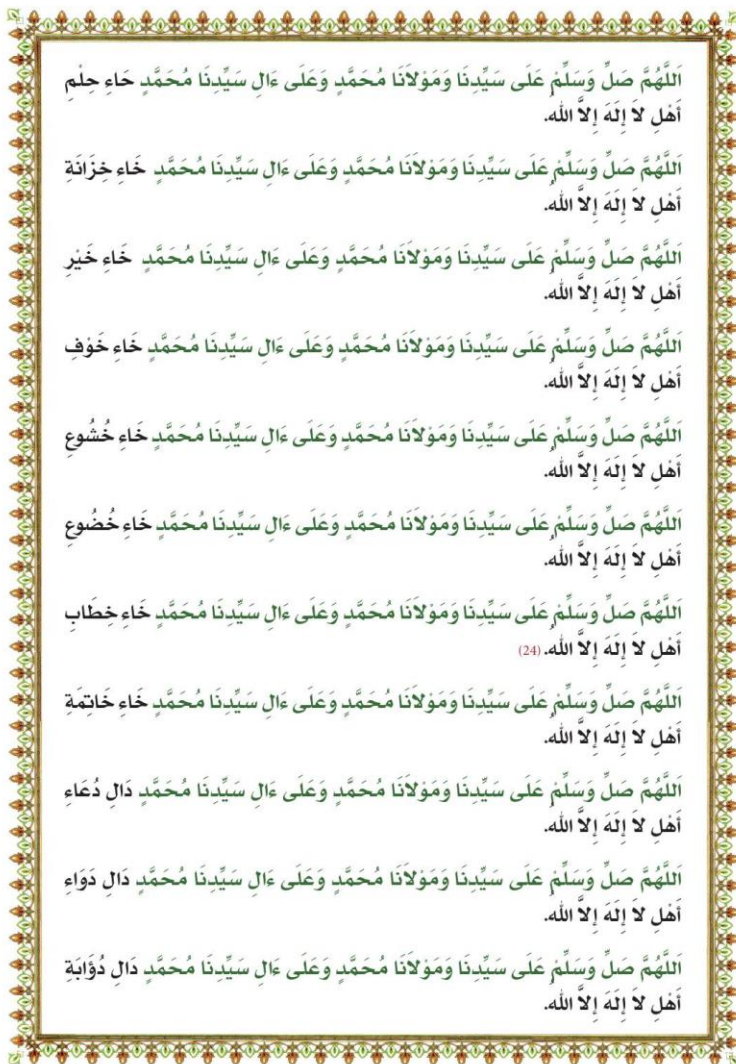 اَللَّهُمَّ صَلِّ وَسَلِّمْ عَلَى سَيِّدِنَا وَمَوْلاَنَا مُحَمَّدٍ وَعَلَى ءَالِ سَيِّدِنَا مُحَمَّدٍ حَاءِ حِلْمِ
أَهْلِ لاَ إِلَهَ إِلاَّ اللَّه.
اَللَّهُمَّ صَلِّ وَسَلِّمْ عَلَى سَيِّدِنَا وَمَوْلاَنَا مُحَمَّدٍ وَعَلَى ءَالِ سَيِّدِنَا مُحَمَّدٍ خَاءِ خِزَانَةِ
أَهْلِ لاَ إِلَهَ إِلاَّ اللَّه.
اَللَّهُمَّ صَلِّ وَسَلِّمْ عَلَى سَيِّدِنَا وَمَوْلاَنَا مُحَمَّدٍ وَعَلَى ءَالِ سَيِّدِنَا مُحَمَّدٍ خَاءِ خَيْرِ
أَهْلِ لاَ إِلَهَ إِلاَّ اللَّه.
اَللَّهُمَّ صَلِّ وَسَلِّمْ عَلَى سَيِّدِنَا وَمَوْلاَنَا مُحَمَّدٍ وَعَلَى ءَالِ سَيِّدِنَا مُحَمَّدٍ خَاءِ خَوْفِ
أَهْلِ لاَ إِلَهَ إِلاَّ اللَّه.
اَللَّهُمَّ صَلِّ وَسَلِّمْ عَلَى سَيِّدِنَا وَمَوْلاَنَا مُحَمَّدٍ وَعَلَى ءَالِ سَيِّدِنَا مُحَمَّدٍ خَاءِ خُشُوعِ
أَهْلِ لاَ إِلَهَ إِلاَّ اللَّه.
اَللَّهُمَّ صَلِّ وَسَلِّمْ عَلَى سَيِّدِنَا وَمَوْلاَنَا مُحَمَّدٍ وَعَلَى ءَالِ سَيِّدِنَا مُحَمَّدٍ خَاءِ خُضُوعِ
أَهْلِ لاَ إِلَهَ إِلاَّ اللَّه.
اَللَّهُمَّ صَلِّ وَسَلِّمْ عَلَى سَيِّدِنَا وَمَوْلاَنَا مُحَمَّدٍ وَعَلَى ءَالِ سَيِّدِنَا مُحَمَّدٍ خَاءِ خِطَابِ
أَهْلِ لاَ إِلَهَ إِلاَّ اللَّه. (24)
اَللَّهُمَّ صَلِّ وَسَلِّمْ عَلَى سَيِّدِنَا وَمَوْلاَنَا مُحَمَّدٍ وَعَلَى ءَالِ سَيِّدِنَا مُحَمَّدٍ خَاءِ خَاتِمَةِ
أَهْلِ لاَ إِلَهَ إِلاَّ اللَّه.
اَللَّهُمَّ صَلِّ وَسَلِّمْ عَلَى سَيِّدِنَا وَمَوْلاَنَا مُحَمَّدٍ وَعَلَى ءَالِ سَيِّدِنَا مُحَمَّدٍ دَالِ دُعَاءِ
أَهْلِ لاَ إِلَهَ إِلاَّ اللَّه.
اَللَّهُمَّ صَلِّ وَسَلِّمْ عَلَى سَيِّدِنَا وَمَوْلاَنَا مُحَمَّدٍ وَعَلَى ءَالِ سَيِّدِنَا مُحَمَّدٍ دَالِ دَوَاءِ
أَهْلِ لاَ إِلَهَ إِلاَّ اللَّه.
اَللَّهُمَّ صَلِّ وَسَلِّمْ عَلَى سَيِّدِنَا وَمَوْلاَنَا مُحَمَّدٍ وَعَلَى ءَالِ سَيِّدِنَا مُحَمَّدٍ دَالِ دُؤَابَةِ
أَهْلِ لاَ إِلَهَ إِلاَّ اللَّه.